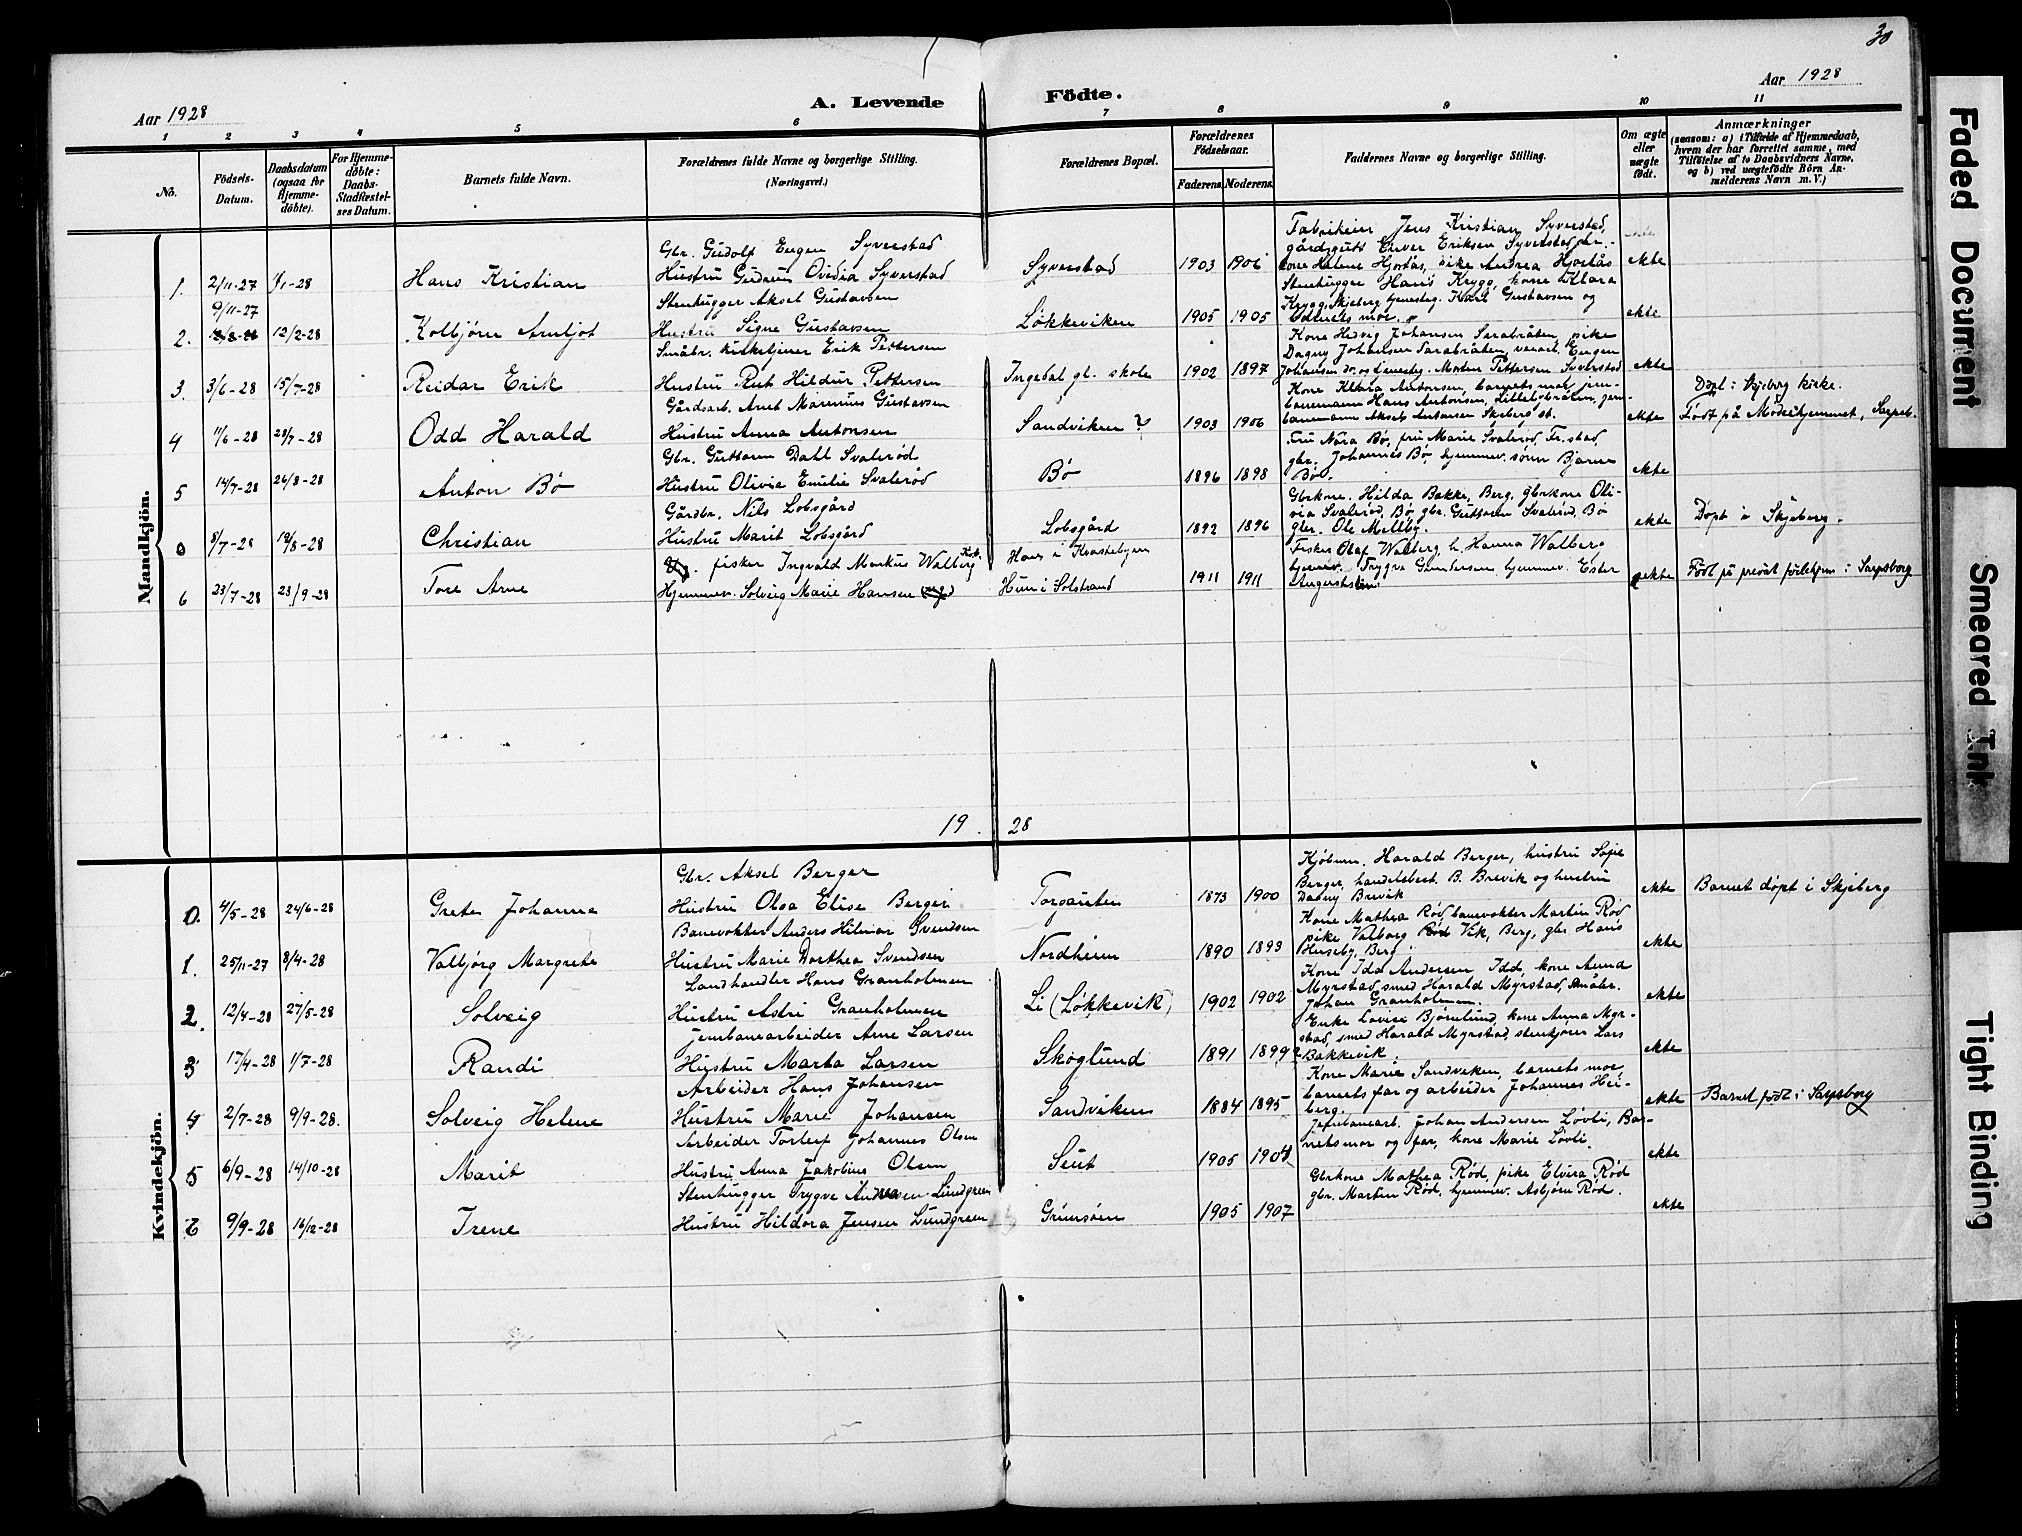 30
Aar 1928
A. Levende
Födte.
Aar 1928
1 2 3 4 5 6 7 8 9 10 11
No.
Födsels-
Datum.
Daabsdatum
(ogsaa for
Hjemme-
döbte).
For Hjemme-
döbte:
Daabs-
Stadfæstel-
ses Datum.
Barnets fulde Navn.
Forældrenes fulde Navne og borgerlige Stilling.
(Næringsvei.)
Forældrenes Bopæl.
Forældrenes
Födselsaar.
Faderens.
Moderens.
Faddernes Navne og borgerlige Stilling.
Om ægte
eller
uægte
födt.
Anmærkninger
(saasom: a) i Tilfælde af Hjemmedaab,
hvem der har forrettet samme, med
Tilföielse af to Daabsvidners Navne,
og b) ved uægtefödte Börn An-
melderens Navn m. V.)
Mandkjön.
1. 2/11-27 1/1-28
Hans Kristian
Gbr. Gudolf Eugen Syverstad
Hustru Gudrun Ovidia Syverstad
Syverstad
1903 1906
Fabrikeier Jens Kristian Syverstad,
gårdsgutt Enver Eriksen Syverstad, gbr.-
kone Helene Hjortås, pike Andrea Hjortås
ekte
2. 9/11-27
12/2-28
Kolbjørn Arnljot
Stenhugger Aksel Gustavsen
Hustru Signe Gustavsen
Løkkeviken
1905 1905
Stenhugger Hans Krygg, kone Klara
Krygg, Skjeberg, tjenesteg. Karl Gustavsen og
barnets mor.
ekte
3. 3/6-28 15/7-28
Reidar Erik
Småbr. kirketjener Erik Pettersen
Hustru Rut Hildur Pettersen
Ingedal gl. skole
1902 1897
Kone Hedvig Johansen Sarabråten, pike
Dagny Johansen Sarabråten, verarb. Eugen
Johansen do. og tjenesteg. Morten Pettersen Syverstad
ekte
4 11/6-28 29/7-28
Odd Harald
Gårdsarb. Arnt Marenius Gustavsen
Hustru Anna Antonsen
Sandviken ?
1903 1906
Kone Klara Antonsen, barnets mor, jern-
banemann Hans Antonsen, Lillelvbråten, jern-
banemann Aksel Antonsen Skjeberg st.
ekte
Døpt i Skjeberg kirke.
Født på Mødrehjemmet, Sarpsb.
5 14/7-28 26/8-28
Anton Bø
Gbr. Guttorm Dahl Svalerød
Hustru Olivia Emilie Svalerød
Bø
1896 1898
Fru Nora Bø, fru Marie Svalerød, Fr.stad,
gbr. Johannes Bø, hjemmev. sønn Bjarne
Bø.
ekte
0 8/7-28 19/8-28
Christian
Gårdbr. Nils Lobsgård
Hustru Marit Lobsgård
Lobsgård
1892 1896
Gbrkone. Hilda Bakke, Berg, gbrkone Oli-
via Svalerød, Bø gbr. Guttorm Svalerød, Bø
gbr. Ole Melleby.
ekte
Døpt i Skjeberg.
6 23/7-28 23/9-28
Tore Arne
fisker Ingvald Markus Walberg
Hjemmev. Solveig Marie Hansen
Hans i Krossebyen
Hun i Solstrand
1911 1911
Fisker Olaf Walberg, h. Hanna Walberg
hjemmev. Trygve Gundersen, hjemmev. Ester
Augustsen
uekte
Født på privat fødehjem i Sarpsborg
19 28
Kvindekjön.
0. 4/5-28 24/6-28
Grete Johanne
Gbr. Aksel Berger
Hustru Olga Elise Berger
Torgauten
1873 1900
Kjøbmn. Harald Berger, hustru Sofie
Berger, handelsbest. B. Brevik og hustru
Dagny Brevik
ekte
Barnet døpt i Skjeberg
1. 25/11-27 8/4-28
Valbjørg Margrete
Banevokter Anders Hilmar Svendsen
Hustru Marie Dorthea Svendsen
Nordheim
1890 1893
Kone Mathea Rød, banevokter Martin Rød
pike Valborg Vik, Berg, gbr Hans
Huseby, Berg
ekte
2. 12/4-28 27/5-28
Solveig
Landhandler Hans Granholmen
Hustru Astri Granholmen
Li (Løkkevik)
1902 1902
Kone Ida Andersen Idd, kone Anna
Myrstad, smed Harald Myrstad, småbr.
Johan Granholmen.
ekte
3 17/4-28 1/7-28
Randi
Jernbanearbeider Arne Larsen
Hustru Marta Larsen
Skoglund
1891 1899
Enke Lovise Bjørnlund, kone Anna Myr-
stad, smed Harald Myrstad, stenkjører Lars
Bakkevik.
ekte
4 2/7-28 9/9-28.
Solveig Helene
Arbeider Hans Johansen
Hustru Marie Johansen
Sandviken
1884 1895
Kone Marie Sandviken, barnets mor,
barnets far og arbeider Johannes Hei-
berg.
ekte
Barnet født i Sarpsborg
5 6/9-28 14/10-28
Marit
Arbeider Torleif Johannes Olsen
Hustru Anna Jakobine Olsen
Seut
1905 1904
Jernbanearb. Johan Andersen Løvli, Bar-
nets mor og far, kone Marie Løvli.
ekte
6 9/9-28 16/12-28
Irene
Stenhugger Trygve Andresen Lundgreen
Hustru Hildora Jensen Lundgreen
Grimsøen
1905 1907
Gbrkone Mathea Rød, pike Elvira Rød
gbr. Martin Rød, hjemmev. Asbjørn Rød.
ekte
Faded Document
Smeared Ink
Tight Binding